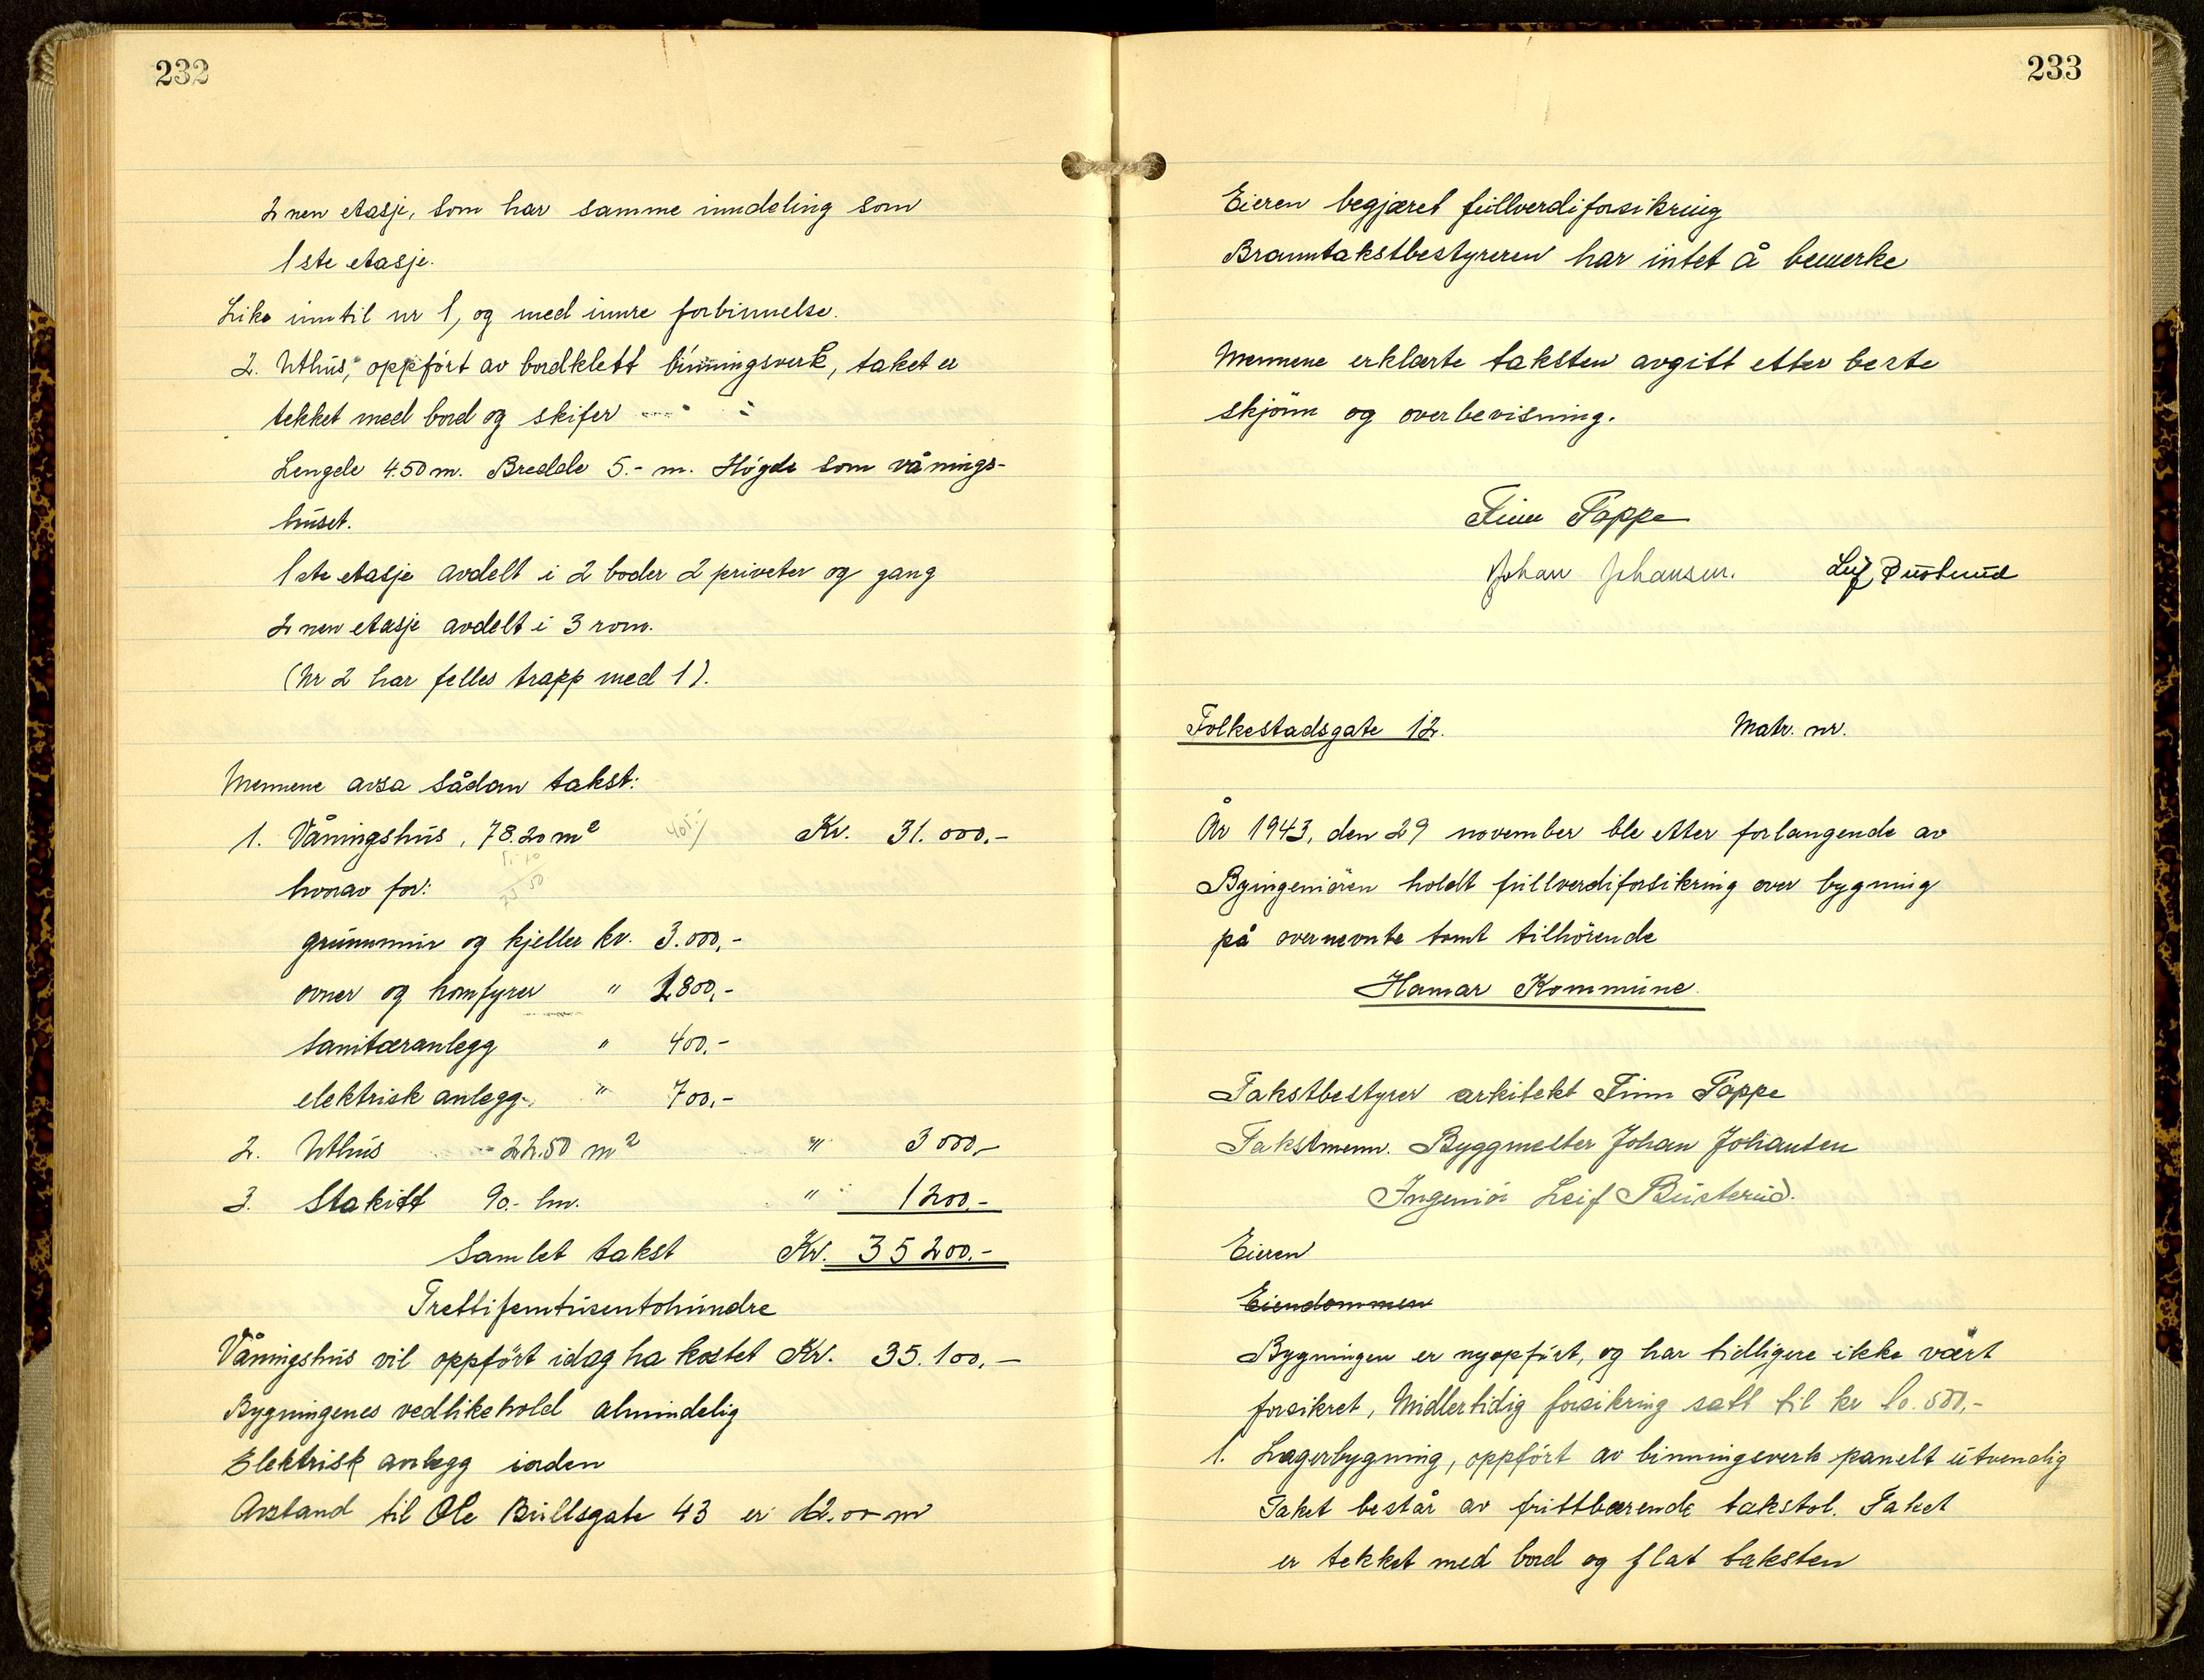 232
2nen etasje, som har samme inndeling som
1ste etasje.
Like inntil nr 1, og med innre forbinnelse.
2. Uthus, oppført av bordklett binningsverk, taket er
tekket med bord og skifer
Lengde 4.50 m. Bredde 5.- m. Högde som vånings-
huset.
1ste etasje avdelt i 2 boder 2 priveter og gang
2nen etasje avdelt i 3 rom.
(Nr 2 har felles trapp med 1).
Mennene avsa sådan takst:
1. Våningshus, 78.20 m² Kr. 31.000.-
hvorav for:
grunnmur og kjeller kr. 3.000,-
ovner og komfyrer " 1800,-
sanitæranlegg " 400.-
elektrisk anlegg " 700,-
2. Uthus 22.50 m² " 3000,-
3. Stakitt 90.- lm. " 1200.-
Samlet takst Kr. 35200.-
Trettifemtusentohundre
Våningshus vil oppfört idag ha kostet Kr. 35.100,-
Bygningenes vedlikehold almindelig
Elektrisk anlegg iorden
Avstand til Ole Bullsgate 43 er 12.00 m
233
Eieren begjæret fullverdiforsikring
Branntakstbestyreren har intet å bemerke
Mennene erklærte taksten avgitt etter beste
skjönn og overbevisning.
Finn Poppe
Johan Johansen. Leif Busterud
Folkestadsgate 12. Matr. nr.
År 1943, den 29 november ble etter forlangende av
Byingeniören holdt fullverdiforsikring over bygning
på overnevnte tomt tilhörende
Hamar Kommune.
Takstbestyrer arkitekt Finn Poppe
Takstmenn. Byggmester Johan Johansen
Ingeniör Leif Busterud.
Eieren
Eiendommen
Bygningen er nyoppfört, og har tidligere ikke vært
forsikret, Midlertidig forsikring satt til kr 10.500,-
1. Lagerbygning, oppfört av binningsverk panelt utvendig
Taket består av frittbærende takstol. Taket
er tekket med bord og flat taksten